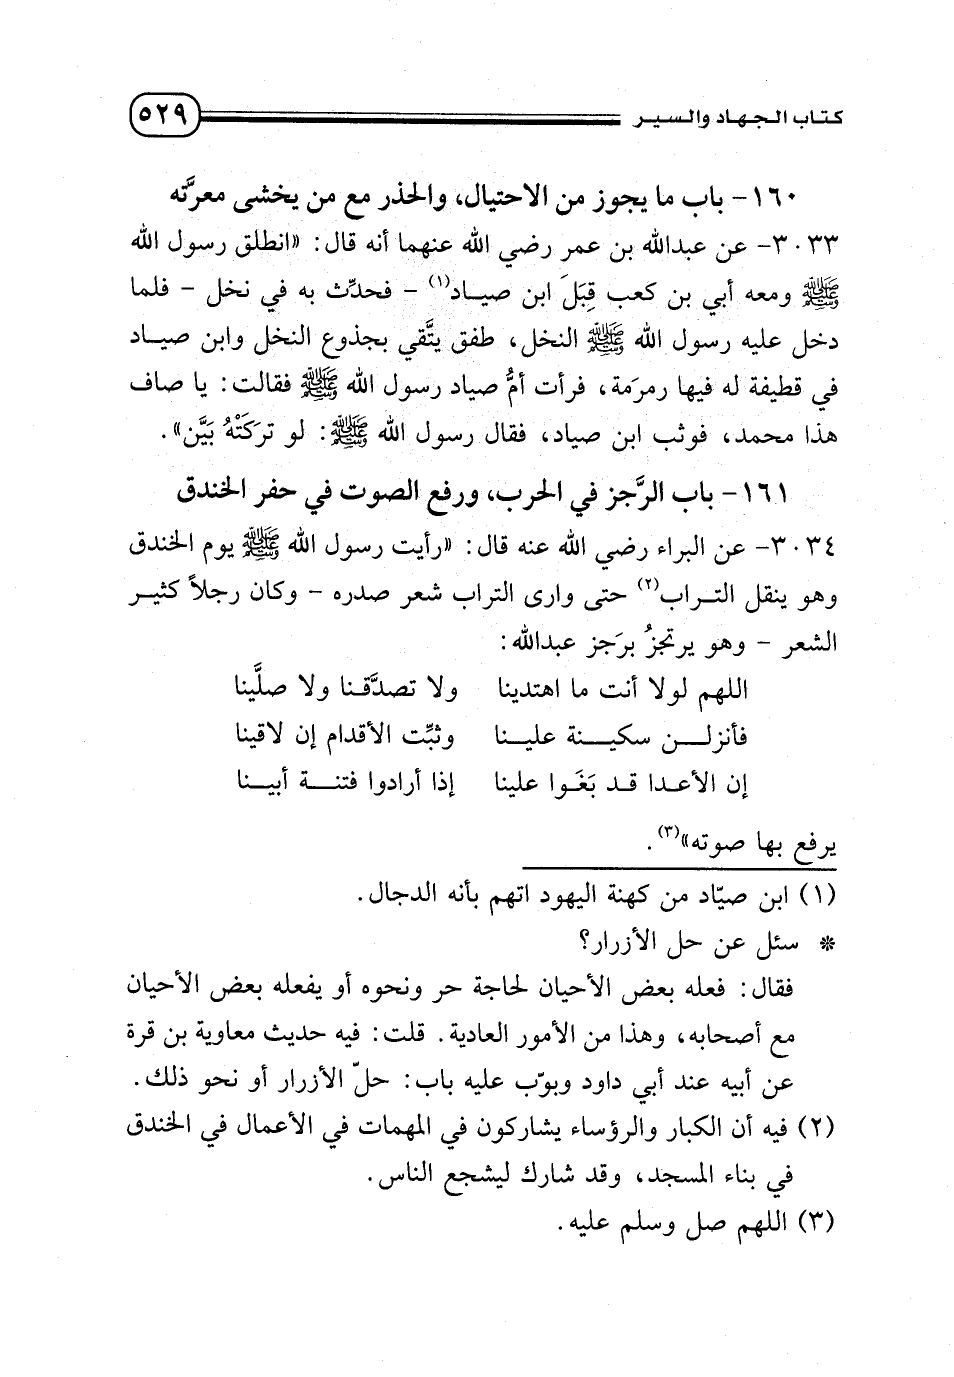 كتاب الجهاد والسير ٥٢٩
١٦٠- باب ما يجوز من الاحتيال، والحذر مع من يخشى معرَّته
٣٠٣٣- عن عبدالله بن عمر رضي الله عنهما أنه قال: «انطلق رسول الله
ﷺ ومعه أبي بن كعب قِبَلَ ابن صياد(١) - فحدِّث به في نخل - فلما
دخل عليه رسول الله ﷺ النخل، طفق يتَّقي بجذوع النخل وابن صياد
في قطيفة له فيها رمرمة، فرأت أمُّ صياد رسول الله ﷺ فقالت: يا صاف
هذا محمد، فوثب ابن صياد، فقال رسول الله ﷺ: لو تركَتْهُ بَيَّن».
١٦١- باب الرَّجز في الحرب، ورفع الصوت في حفر الخندق
٣٠٣٤- عن البراء رضي الله عنه قال: «رأيت رسول الله ﷺ يوم الخندق
وهو ينقل التراب(٢) حتى وارى التراب شعر صدره - وكان رجلاً كثير
الشعر - وهو يرتجزُ برَجز عبدالله:
اللهم لولا أنت ما اهتدينا ولا تصدَّقنا ولا صلَّينا
فأنزلن سكينة علينا وثبِّت الأقدام إن لاقينا
إن الأعدا قد بَغَوا علينا إذا أرادوا فتنة أبينا
يرفع بها صوته»(٣).
(١) ابن صيّاد من كهنة اليهود اتهم بأنه الدجال.
* سئل عن حل الأزرار؟
فقال: فعله بعض الأحيان لحاجة حر ونحوه أو يفعله بعض الأحيان
مع أصحابه، وهذا من الأمور العادية. قلت: فيه حديث معاوية بن قرة
عن أبيه عند أبي داود وبوّب عليه باب: حلّ الأزرار أو نحو ذلك.
(٢) فيه أن الكبار والرؤساء يشاركون في المهمات في الأعمال في الخندق
في بناء المسجد، وقد شارك ليشجع الناس.
(٣) اللهم صل وسلم عليه.